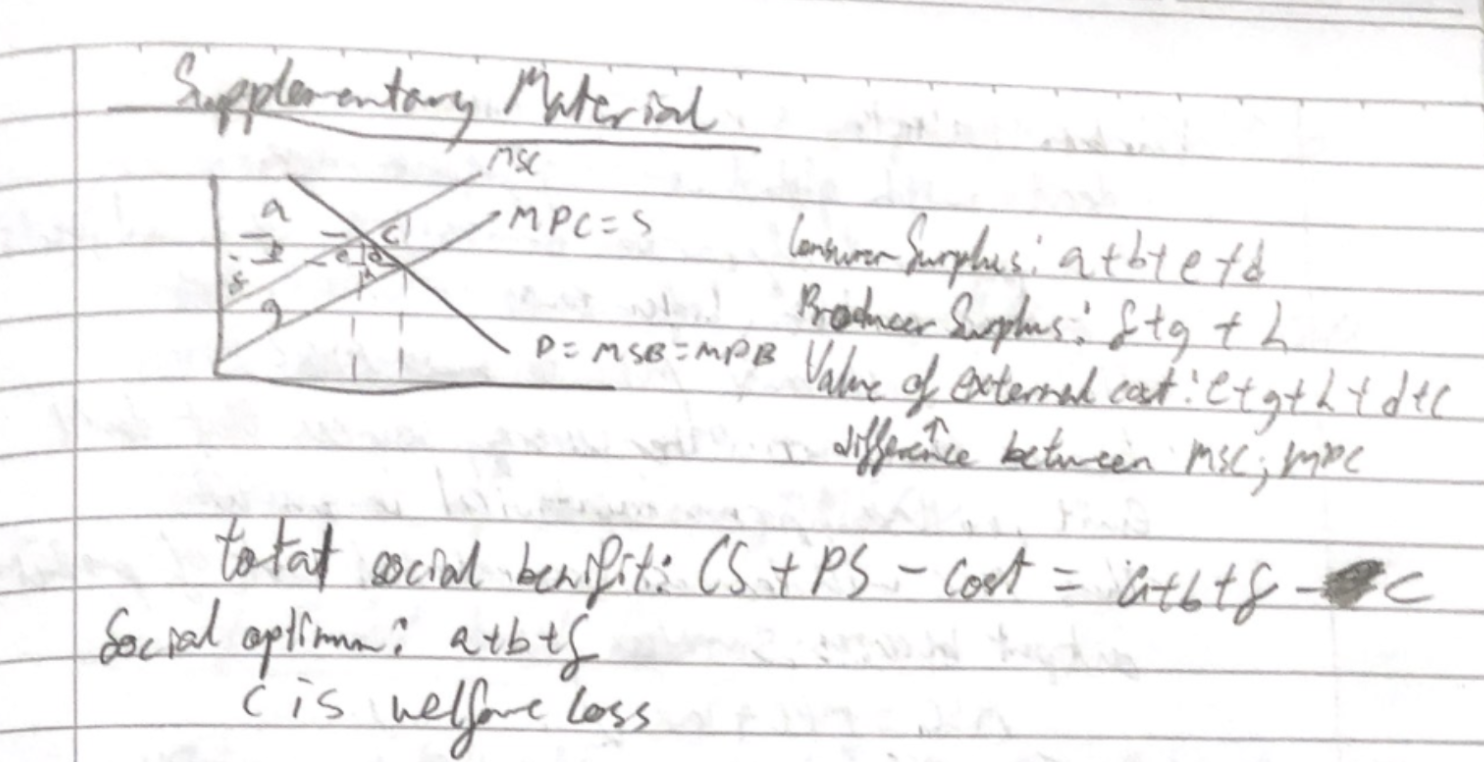 Supplementary Material
MSC
MPC = S
a
b
c
e
d
f
h
g
D = MSB = MPB
Consumer Surplus: a+b+e+d
Producer Surplus: f+g+h
Value of external cost: e+g+h+d+c
difference between MSC, MPC
total social benifit: CS + PS - cost = a+b+f - c
Social optimum: a+b+f
c is welfare loss